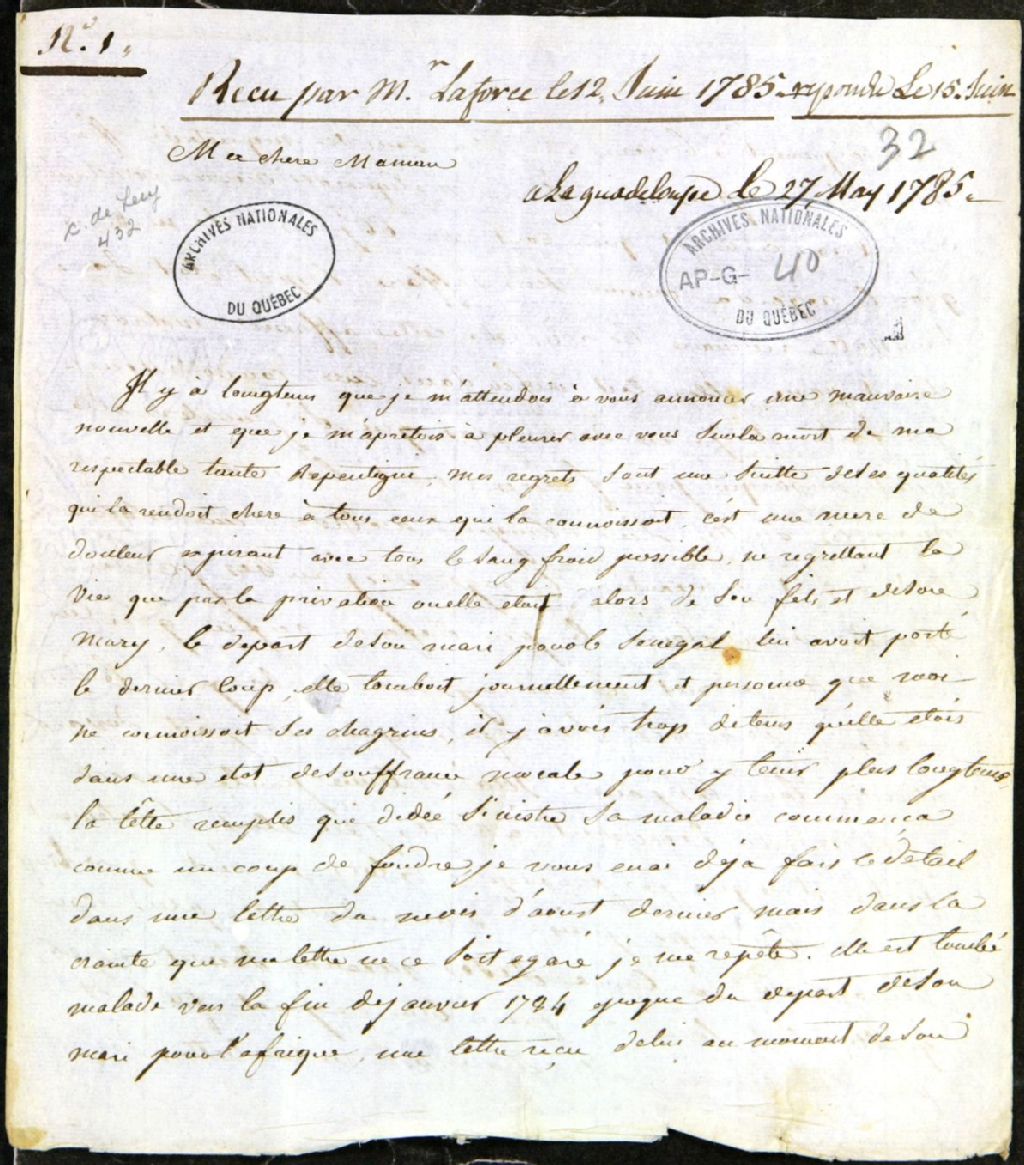 N.° 1.
Recu par M.r Laforce le 12. Juin 1785 repondu Le 15. Juin
32
Ma chere Maman
a La guadeloupe le 27, May 1785.
c. de Lery
432
ARCHIVES NATIONALES
DU QUÉBEC
ARCHIVES NATIONALES
AP-G- 40
DU QUÉBEC
Il y à longtems que je m'attendois à vous annoncer une mauvaise
nouvelle et que je m'apretois à pleurer avec vous sur la mort de ma
respectable tante Repentigni, mes regrets sont une suitte de ses qualités
qui la rendoit chere à tous ceux qui la connoissoit, c'est une mere de
douleur expirant avec tous le sang froid possible, ne regrettant la
vie que par la privation ou elle etait alors de son fils et de son
mary, le depart de son mari pour le Senegal lui avoit porté
le dernier coup, elle tomboit journellement et personne que moi
ne connoissoit ses chagrins, il y avoit trop de tems qu'elle etois
dans une etat de souffrance morale pour y tenir plus longtems,
la tête remplis que d'idée sinistre sa maladie commença
comme un coup de foudre, je vous en ai déja fais le détail
dans une lettre du mois d'aoust dernier mais dans la
crainte que ma lettre ne ce soit egaré je me repête. elle est tombé
malade vers la fin de janvier 1784 epoque du depart de son
mari pour l'afrique, une lettre reçu de lui au moment de son